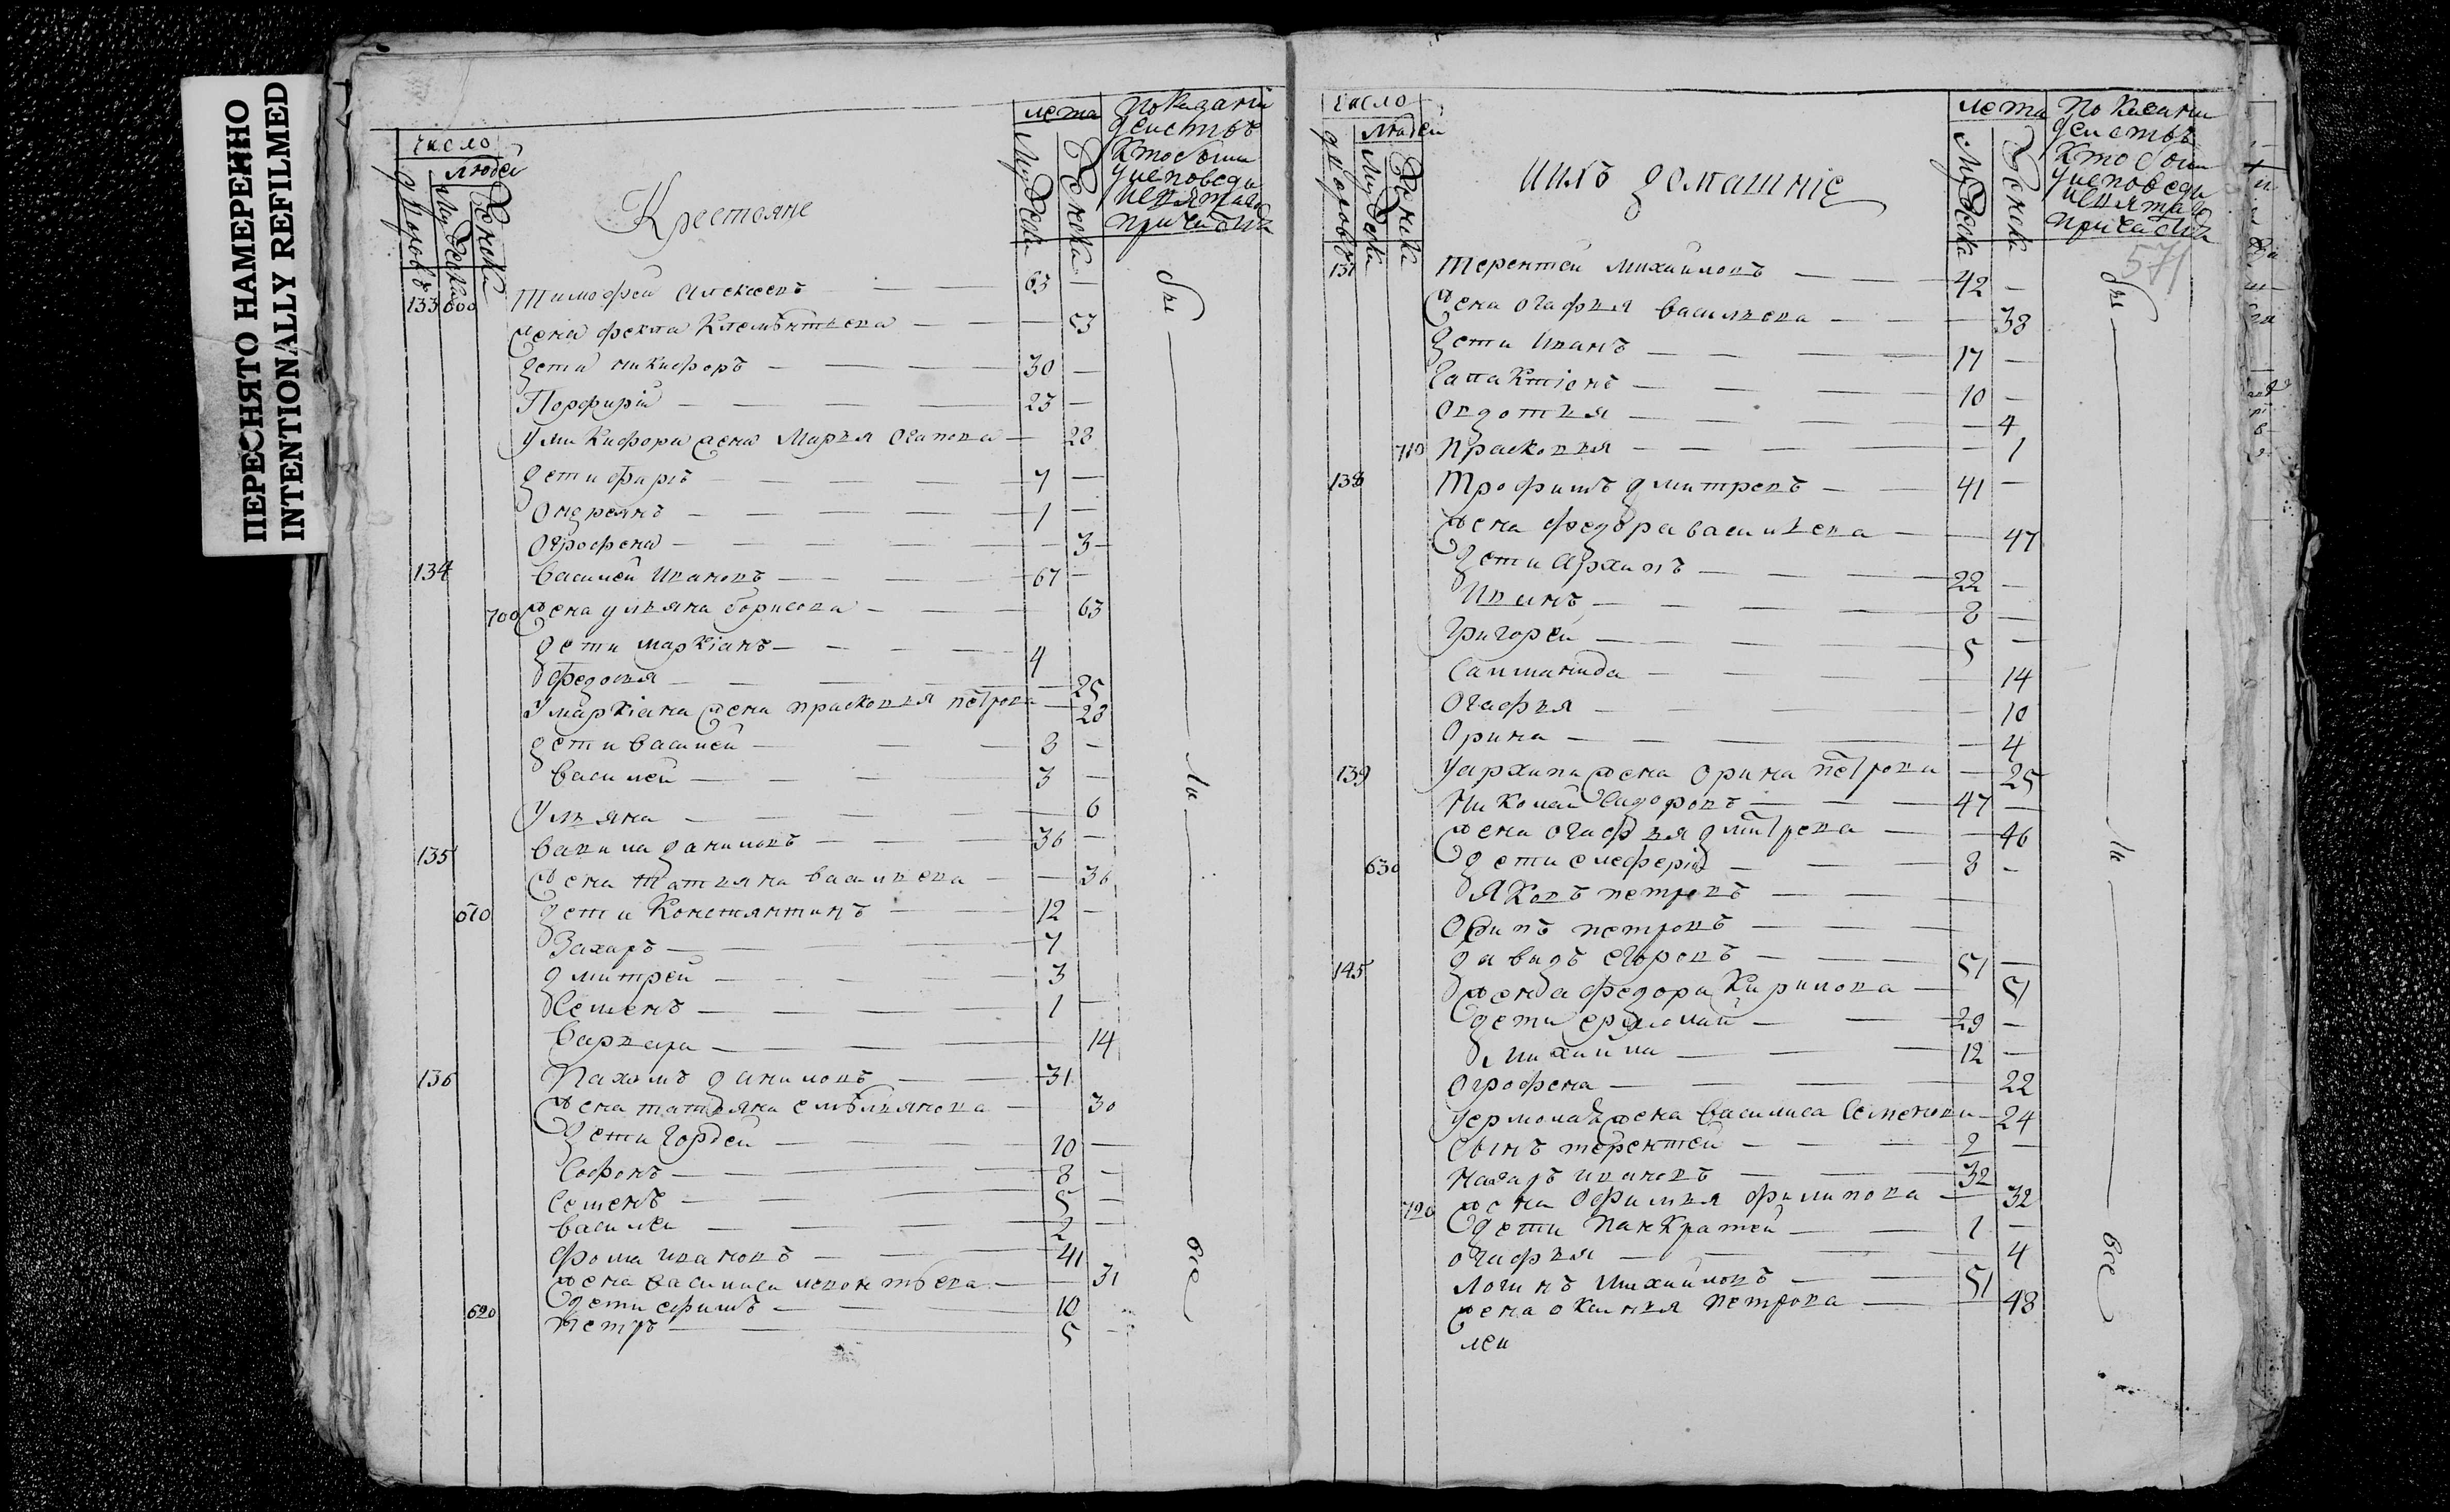 ПЕРЕСНЯТО НАМЕРЕННО
INTENTIONALLY REFILMED
число
людей
дворовъ
Мужеска
Женска
Крестьяне
лета
Мужеска
Женска
Показание
действъ
Кто были
у исповеди
и святаго
причастия
133 600 Тимофей Алексеевъ 63
жена фекла Клементьева 53
дети никифоръ 30
Порфирий 23
у Никифора жена Марья Осипова 28
дети фирсъ 7
Ондреянъ 1
Огрофена 3
134 василей Ивановъ 67
700 жена ульяна борисова 63
дети маркианъ 4
федосья 25
У маркиана жена прасковья петрова 28
дети василей 8
василей 3
Ульяна 6
135 вавила даниловъ 36
жена татьяна васильева 36
610 дети Константинъ 12
Захаръ 7
дмитрей 3
Семенъ 1
варвара 14
136 Пахомъ даниловъ 31
жена татьяна емельянова 30
дети гордей 10
Софонъ 8
Семенъ 5
василей 2
фома ивановъ 41
жена василиса леонтьева 31
620 дети ефимъ 10
петръ 5
Сии
Ли
все
число
людей
дворовъ
Мужеска
Женска
ихъ домашніе
лета
Мужеска
Женска
Показание
действъ
Кто были
у исповеди
и святаго
причастия
571
137 терентей михайловъ 42
жена огафья васильева 38
дети Иванъ 17
Галактіонъ 10
овдотья 4
710 прасковья 1
138 Трофимъ дмитревъ 41
жена федора васильева 47
дети Архипъ 22
Иванъ 8
григорей 5
Саломанида 14
Огафья 10
Орина 4
139 У архипа жена орина петрова 25
Николай Сидоровъ 47
жена огафья дмитрева 46
630 дети елеферий 8
Яковъ петровъ
Осипъ петровъ
145 давидъ егоровъ 51
жена федора Кирилова 51
дети ермолай 29
михайла 12
огрофена 22
У ермолая жена василиса Семенова 24
сынъ терентей 2
назаръ ивановъ 32
720 жена Офимья филипова 32
дети панкратей 1
огафья 4
логинъ михайловъ 51
жена оксинья петрова 48
лей
Сии
Ли
все